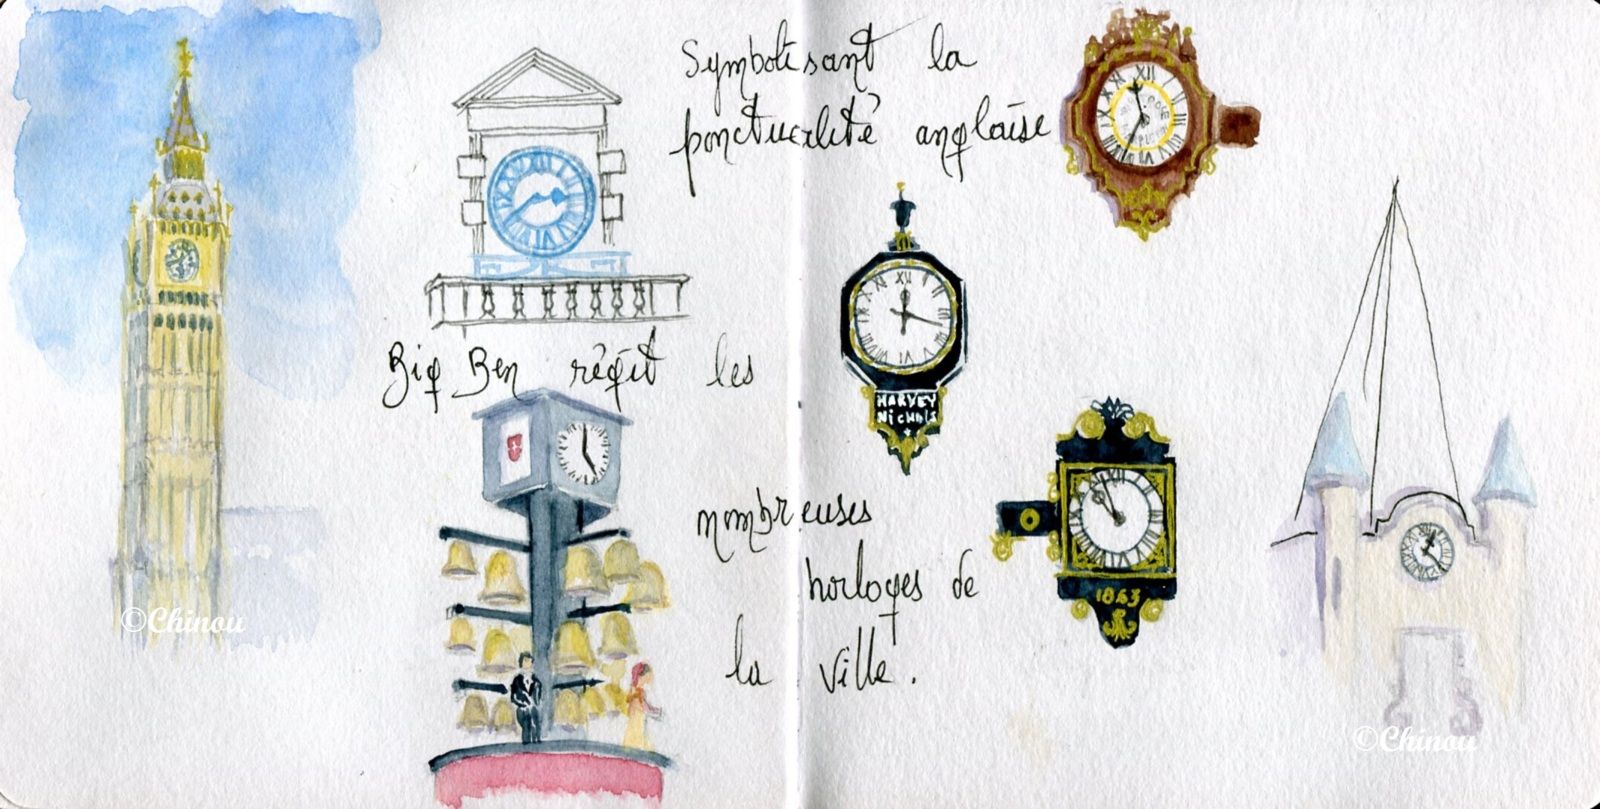 Symbolisant la
ponctualité anglaise
Big Ben régit les
nombreuses
horloges de
la ville.
HARVEY
NICHOLS
1863
©Chinou
©Chinou